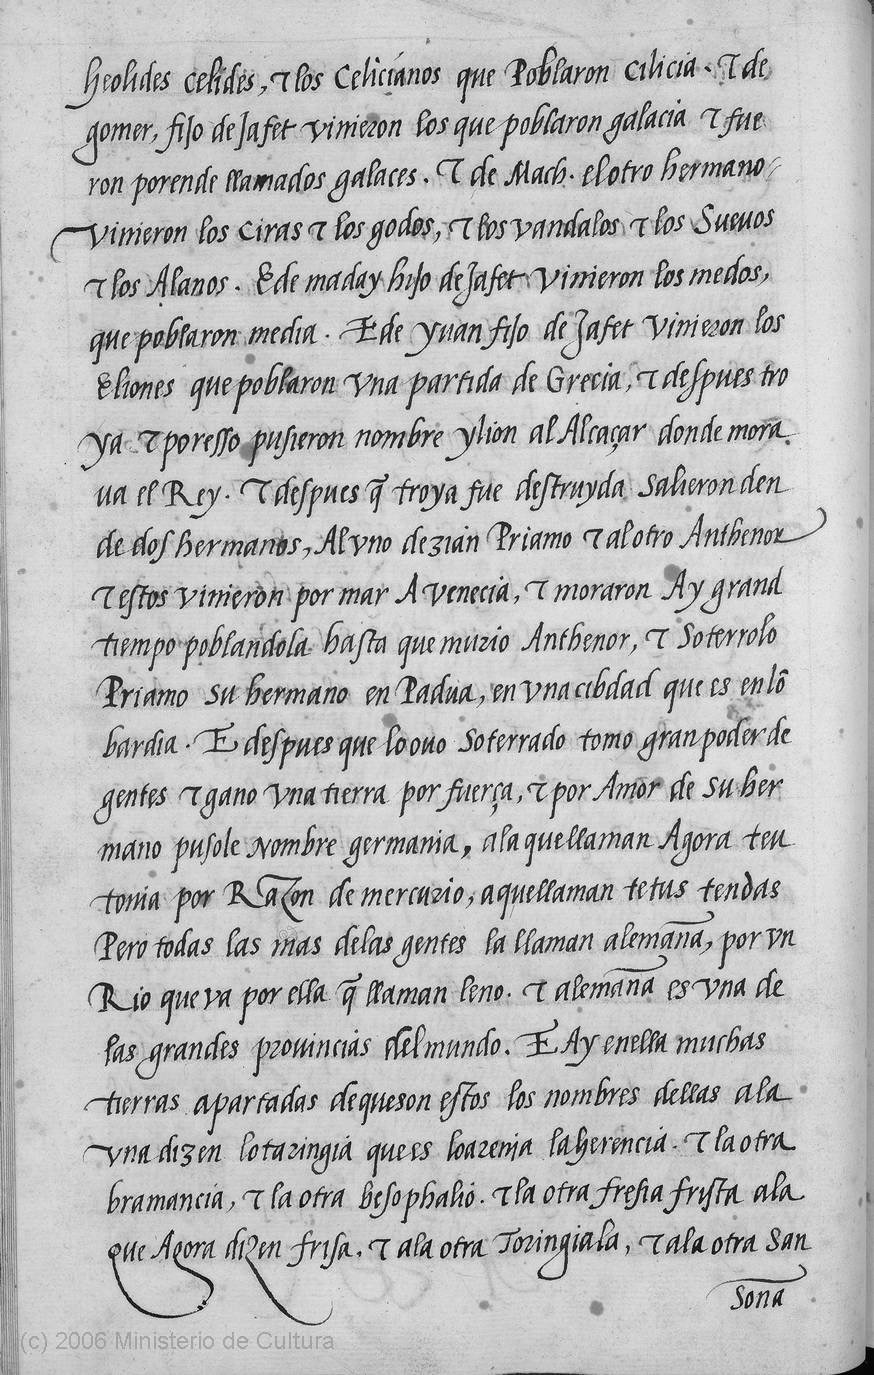 heolides celides, ⁊ los Celicianos que Poblaron cilicia. ⁊ de
gomer, fijo de Jafet vinieron los que poblaron galacia ⁊ fue
ron porende llamados galaces. ⁊ de Mach. el otro hermano
vinieron los Ciras ⁊ los godos, ⁊ los vandalos ⁊ los Sueuos
⁊ los Alanos. E de maday hijo de Jafet vinieron los medos,
que poblaron media. E de yuan fijo de Jafet vinieron los
Eliones que poblaron vna partida de Grecia, ⁊ despues tro
ya ⁊ poresso pusieron nombre ylion al Alcaçar donde mora
ua el Rey. ⁊ despues q̃ troya fue destruyda salieron den
de dos hermanos, Al vno dezian Priamo ⁊ al otro Anthenor
⁊ estos vinieron por mar A venecia, ⁊ moraron Ay grand
tiempo poblandola hasta que murio Anthenor, ⁊ Soterrolo
Priamo su hermano en Padua, en vna cibdad que es en lõ
bardia. E despues que lo ouo Soterrado tomo gran poder de
gentes ⁊ gano vna tierra por fuerça, ⁊ por Amor de su her
mano pusole Nombre germania, a la que llaman Agora teu
tonia por Razon de mercurio, a que llaman tetus tendas
Pero todas las mas de las gentes la llaman alemãna, por vn
Rio que va por ella q̃ llaman leno. ⁊ alemãna es vna de
las grandes prouincias del mundo. E Ay en ella muchas
tierras apartadas de que son estos los nombres dellas a la
vna dizen lotaringia que es loarenia la herencia. ⁊ la otra
bramancia, ⁊ la otra besophalio. ⁊ la otra fresia frista a la
que Agora dizen frisa, ⁊ a la otra Toringiala, ⁊ a la otra San
Soña
(c) 2006 Ministerio de Cultura